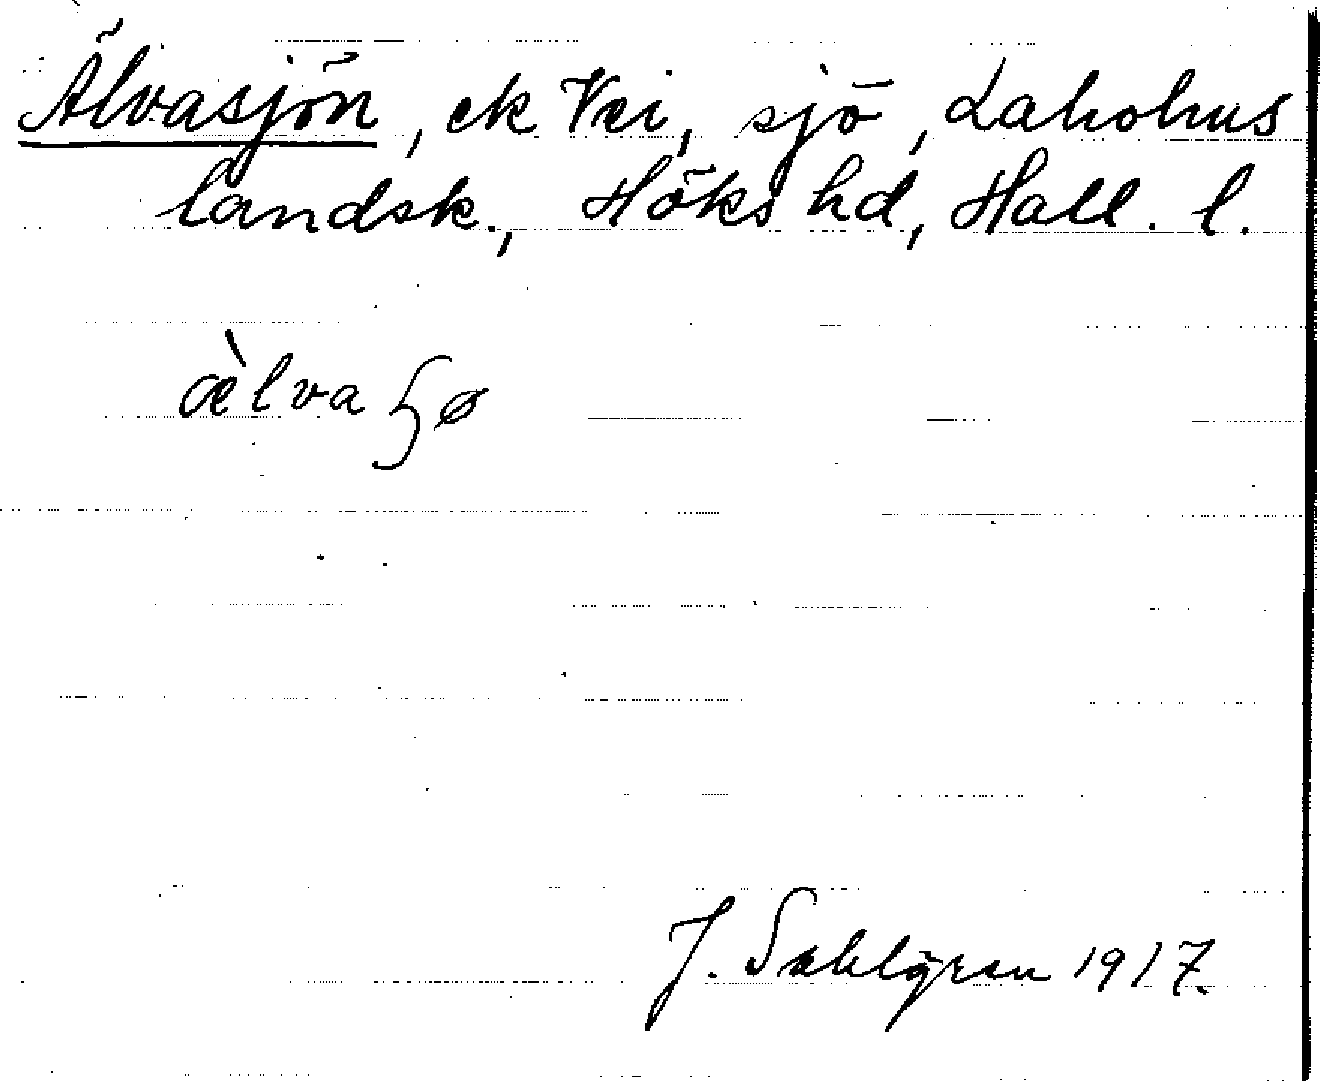 Älvasjön, ek Vei, sjö, Laholms
landsk., Höks hd, Hall. l.
æ̀lvaɧø
J. Sahlgren 1917.